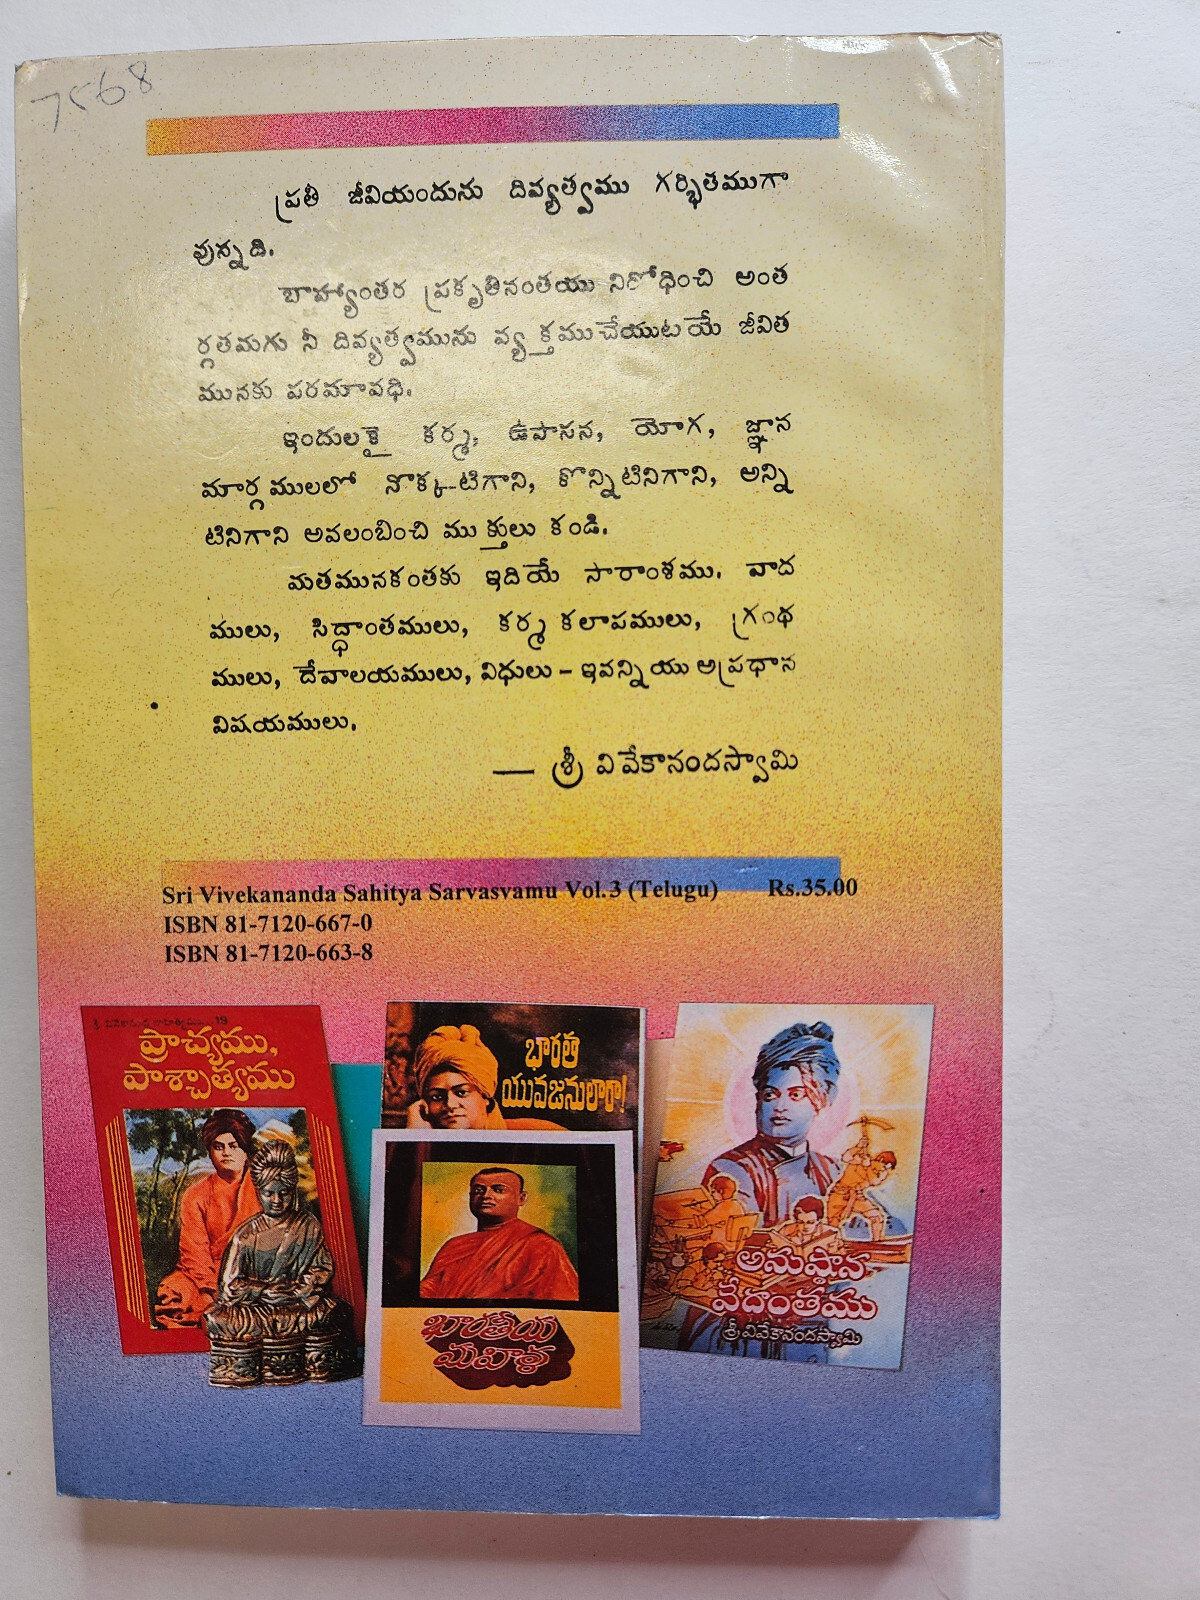 7568
ప్రతి జీవియందును దివ్యత్వము గర్భితముగా
వున్నది.
బాహ్యాంతర ప్రకృతినంతయు నిరోధించి అంత
ర్గతమగు నీ దివ్యత్వమును వ్యక్తముచేయుటయే జీవిత
మునకు పరమావధి.
ఇందులకై కర్మ, ఉపాసన, యోగ, జ్ఞాన
మార్గములలో నొక్కటిగాని, కొన్నిటినిగాని, అన్ని
టినిగాని అవలంబించి ముక్తులు కండి.
మతమునకంతకు ఇదియే సారాంశము. వాద
ములు, సిద్ధాంతములు, కర్మకలాపములు, గ్రంథ
ములు, దేవాలయములు, విధులు – ఇవన్నియు అప్రధాన
విషయములు.
— శ్రీ వివేకానందస్వామి
Sri Vivekananda Sahitya Sarvasvamu Vol.3 (Telugu) Rs.35.00
ISBN 81-7120-667-0
ISBN 81-7120-663-8
19
ప్రాచ్యము,
పాశ్చాత్యము
భారత
యువజనులారా!
భారతీయ
మహిళ
అనుష్ఠాన
వేదాంతము
శ్రీ వివేకానందస్వామి